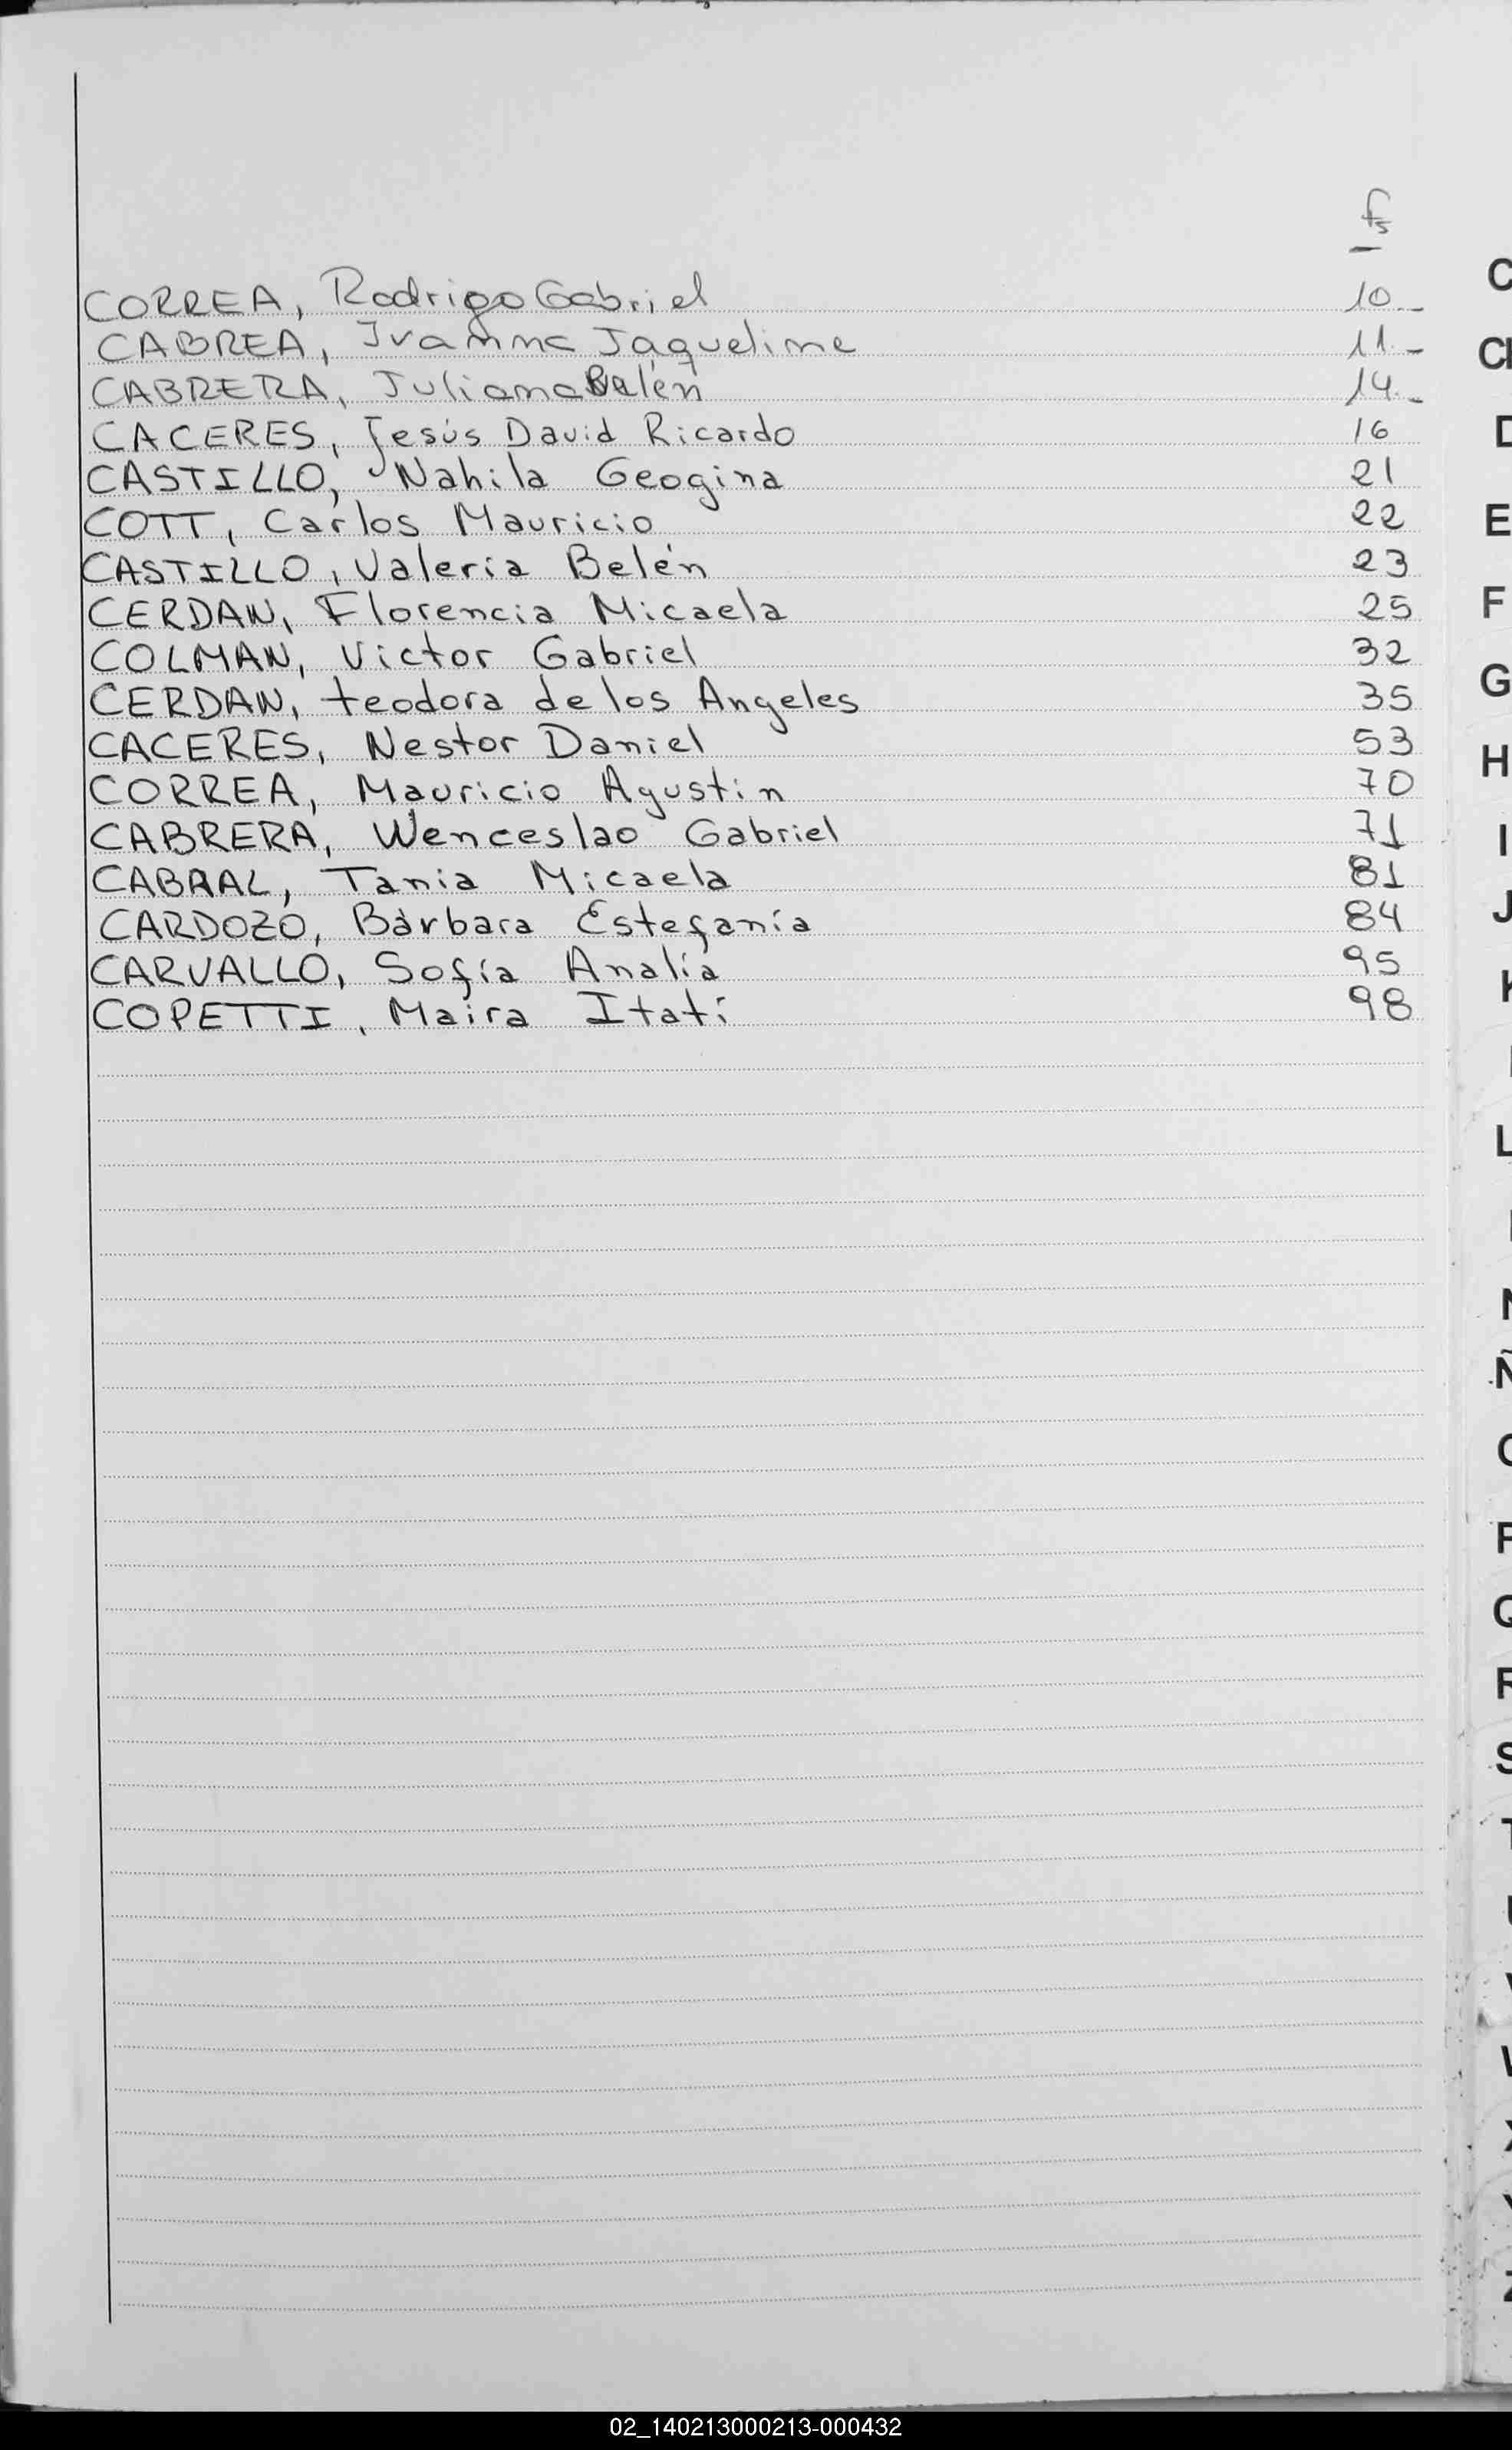 fs
CORREA, Rodrigo Gabriel 10.-
CABREA, Ivanna Jaqueline 11.-
CABRERA, Juliana Belén 14.-
CACERES, Jesús David Ricardo 16
CASTILLO, Nahila Geogina 21
COTT, Carlos Mauricio 22
CASTILLO, Valeria Belén 23
CERDAN, Florencia Micaela 25
COLMAN, Victor Gabriel 32
CERDAN, teodora de los Angeles 35
CACERES, Nestor Daniel 53
CORREA, Mauricio Agustin 70
CABRERA, Wenceslao Gabriel 71
CABRAL, Tania Micaela 81
CARDOZO, Bárbara Estefanía 84
CARVALLO, Sofía Analía 95
COPETTI, Maira Itatí 98
C
D
E
F
G
H
I
J
L
Q
S
02_140213000213-000432